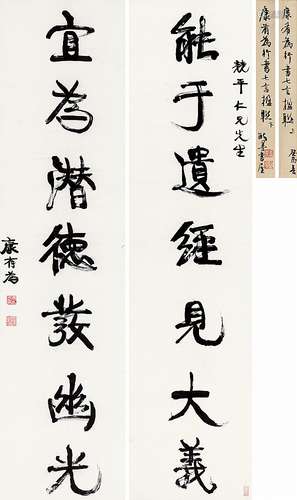 能于遺經見大義
競平仁兄先生
宜為潛德發幽光
康有為
康有為行書七言楹聯
康有為行書七言楹聯